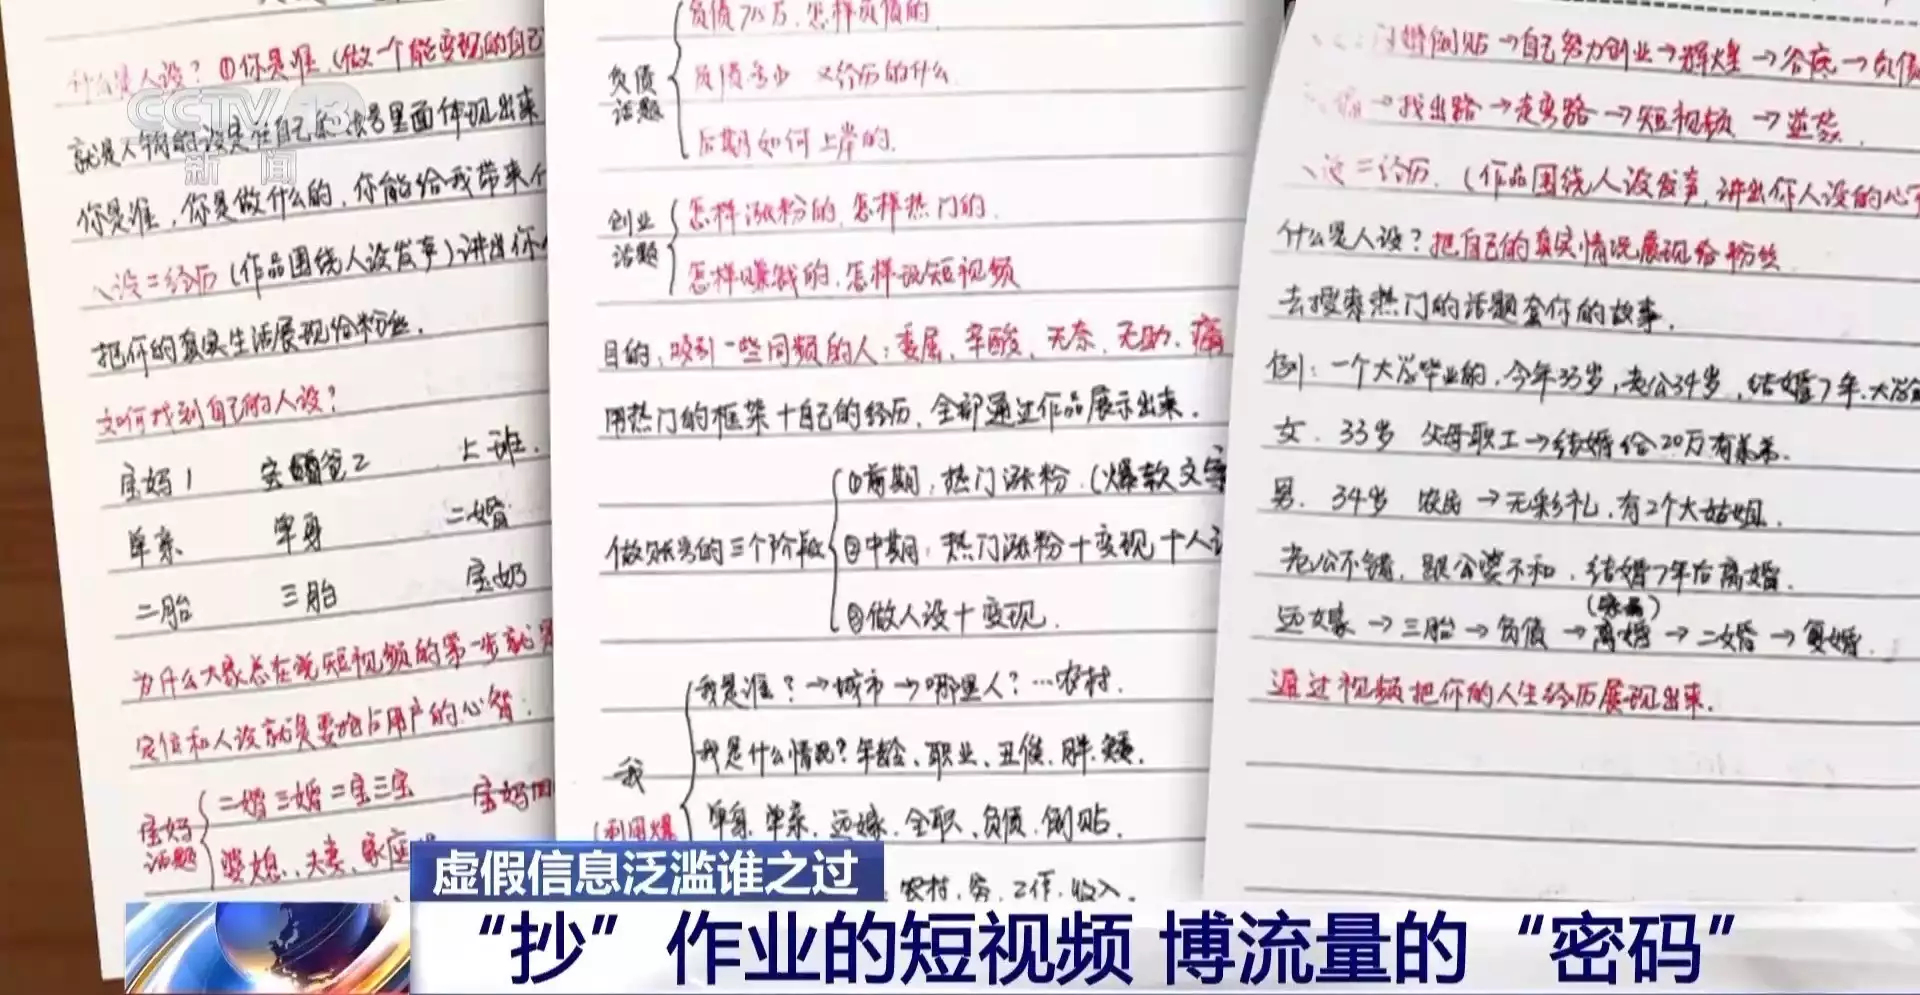 什么是人设？①你是谁（做一个能变现的自己
就是人物的设定在自己的账号里面体现出来
你是谁，你是做什么的，你能给我带来什
人设=经历（作品围绕人设发声）讲出你
把你的真实生活展现给粉丝．
如何找到自己的人设？
宝妈1 宝爸2 上班．
单亲 单身 二婚
二胎 三胎 宝奶
为什么大家总在说短视频的第一步就
定位和人设就是要抢占用户的心智：
宝妈话题
二婚三婚二宝三宝 宝妈
婆媳、夫妻、家庭
负债话题
负债70万．怎样负债的
负债多少 又经历的什么
后期如何上岸的．
创业话题
怎样涨粉的．怎样热门的．
怎样赚钱的．怎样说短视频
目的：吸引一些同频的人：委屈、辛酸、无奈、无助、痛
用热门的框架+自己的经历，全部通过作品展示出来．
做账号的三个阶段
①前期：热门涨粉．（爆款文案
②中期：热门涨粉+变现+人设
③做人设+变现．
我
（利用爆
我是谁？→城市→哪里人？…农村．
我是什么情况？年龄、职业、丑俊、胖、矮．
单身、单亲、远嫁、全职、负债、倒贴．
农村．穷．工作．收入．
婚倒贴→自己努力创业→辉煌→谷底→负债
→找出路→走弯路→短视频→逆袭．
人设=经历．（作品围绕人设发声，讲出你人设的心
什么是人设？把自己的真实情况展现给粉丝
去搜索热门的话题套你的故事．
例：一个大学毕业的．今年33岁，老公34岁，结婚7年．大学
女．33岁 父母职工→结婚给20万有弟弟．
男．34岁 农民→无彩礼，有2个大姑姐．
老公不错，跟公婆不和．结婚7年后离婚．
远嫁→三胎→负债→离婚→二婚→复婚．
通过视频把你的人生经历展现出来．
CCTV 13
新闻
虚假信息泛滥谁之过
“抄”作业的短视频 博流量的“密码”